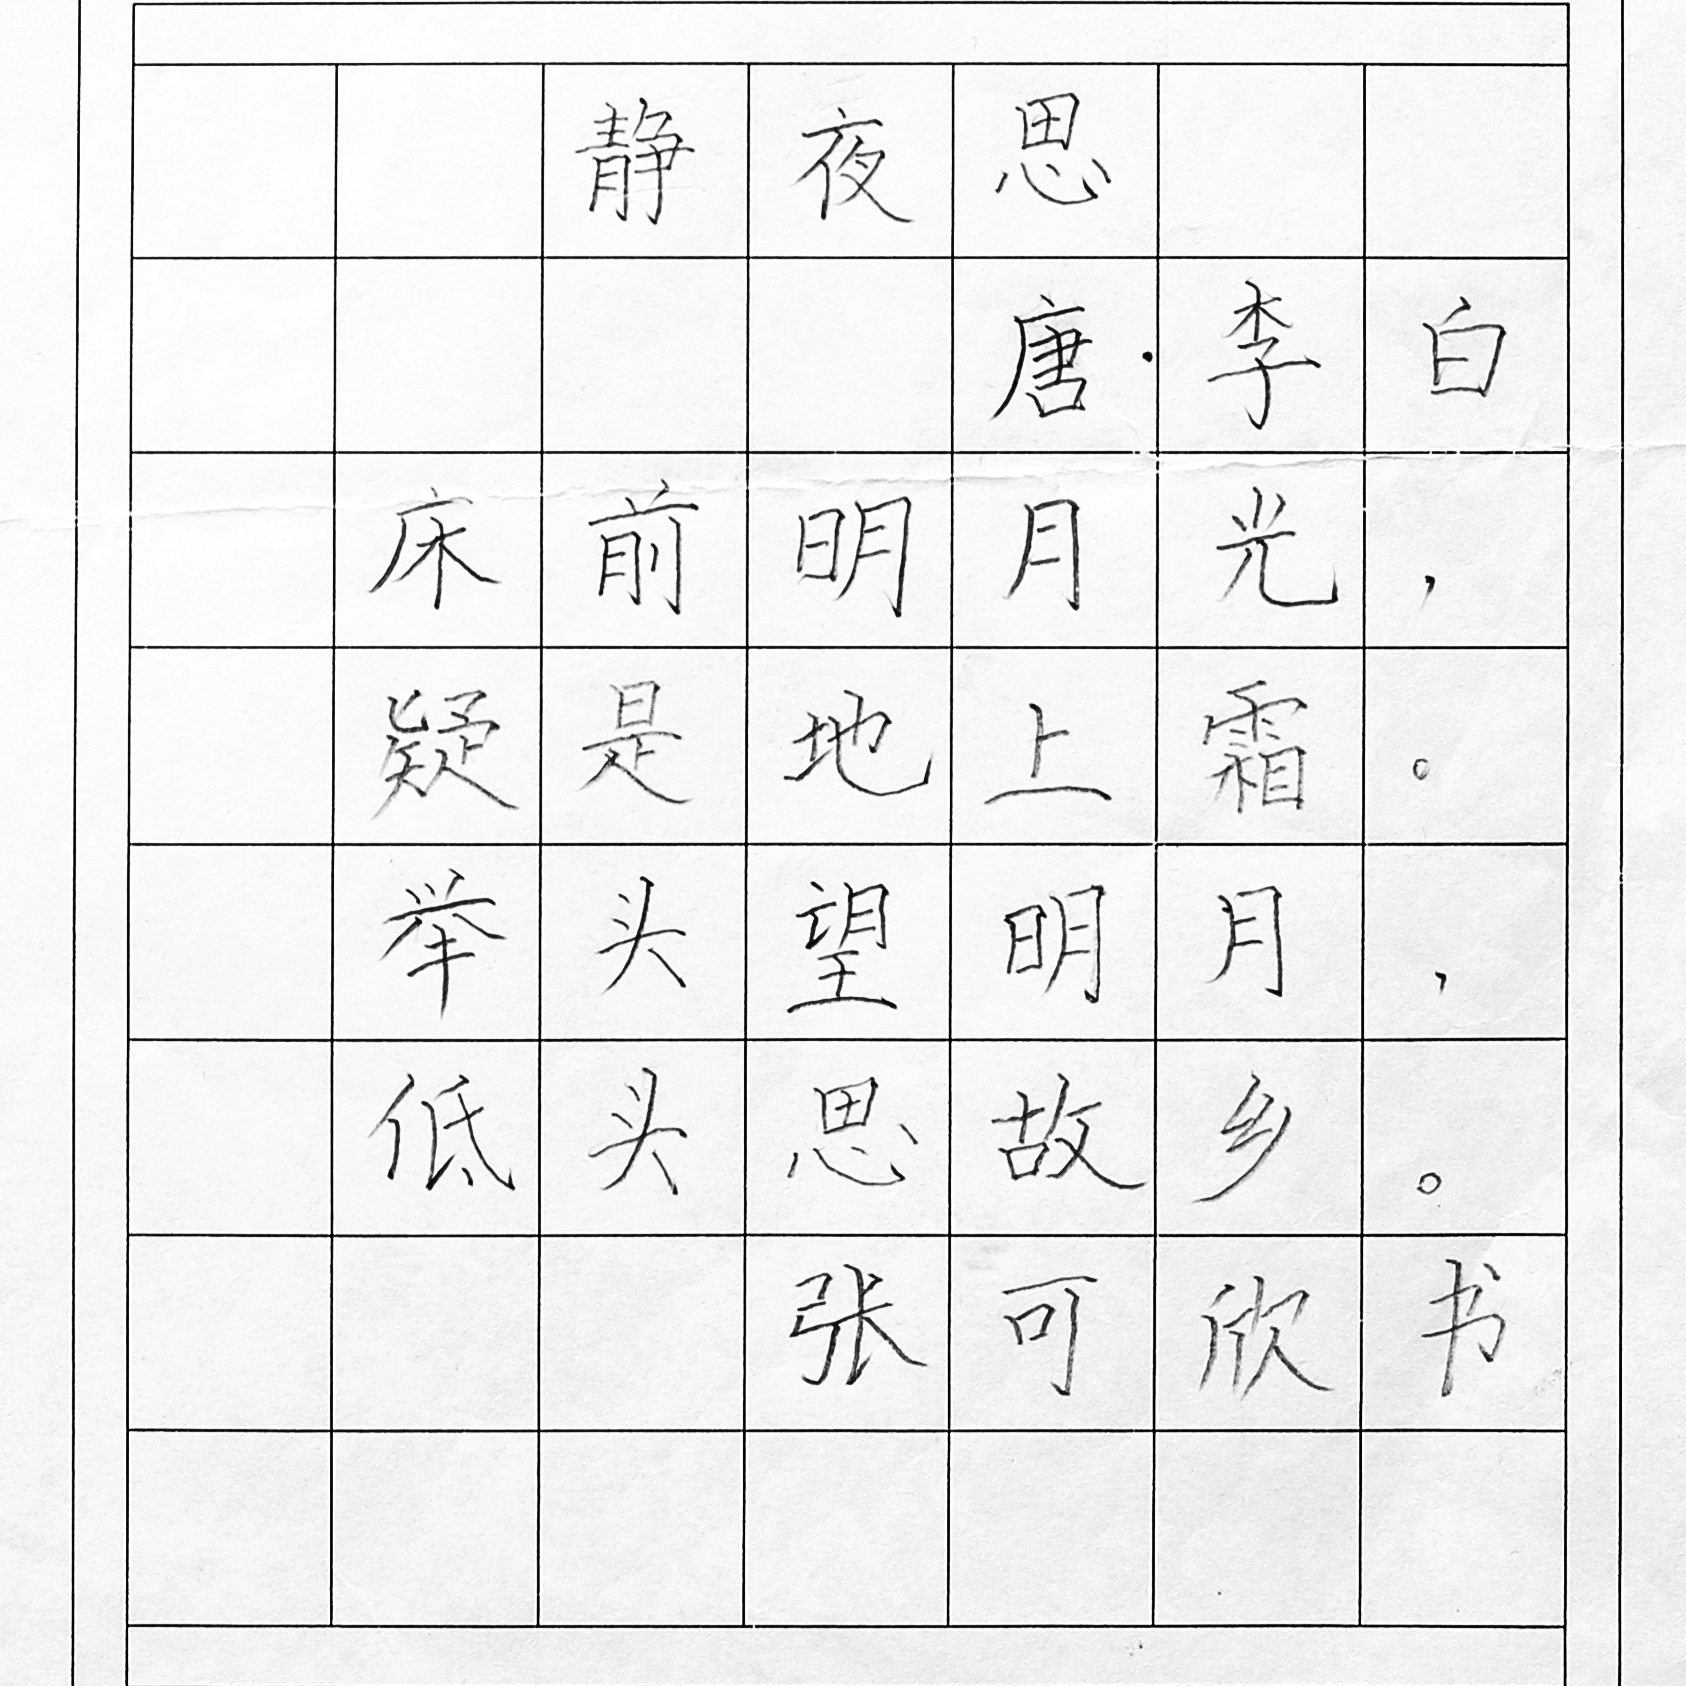 静夜思
唐·李白
床前明月光，
疑是地上霜。
举头望明月，
低头思故乡。
张可欣书